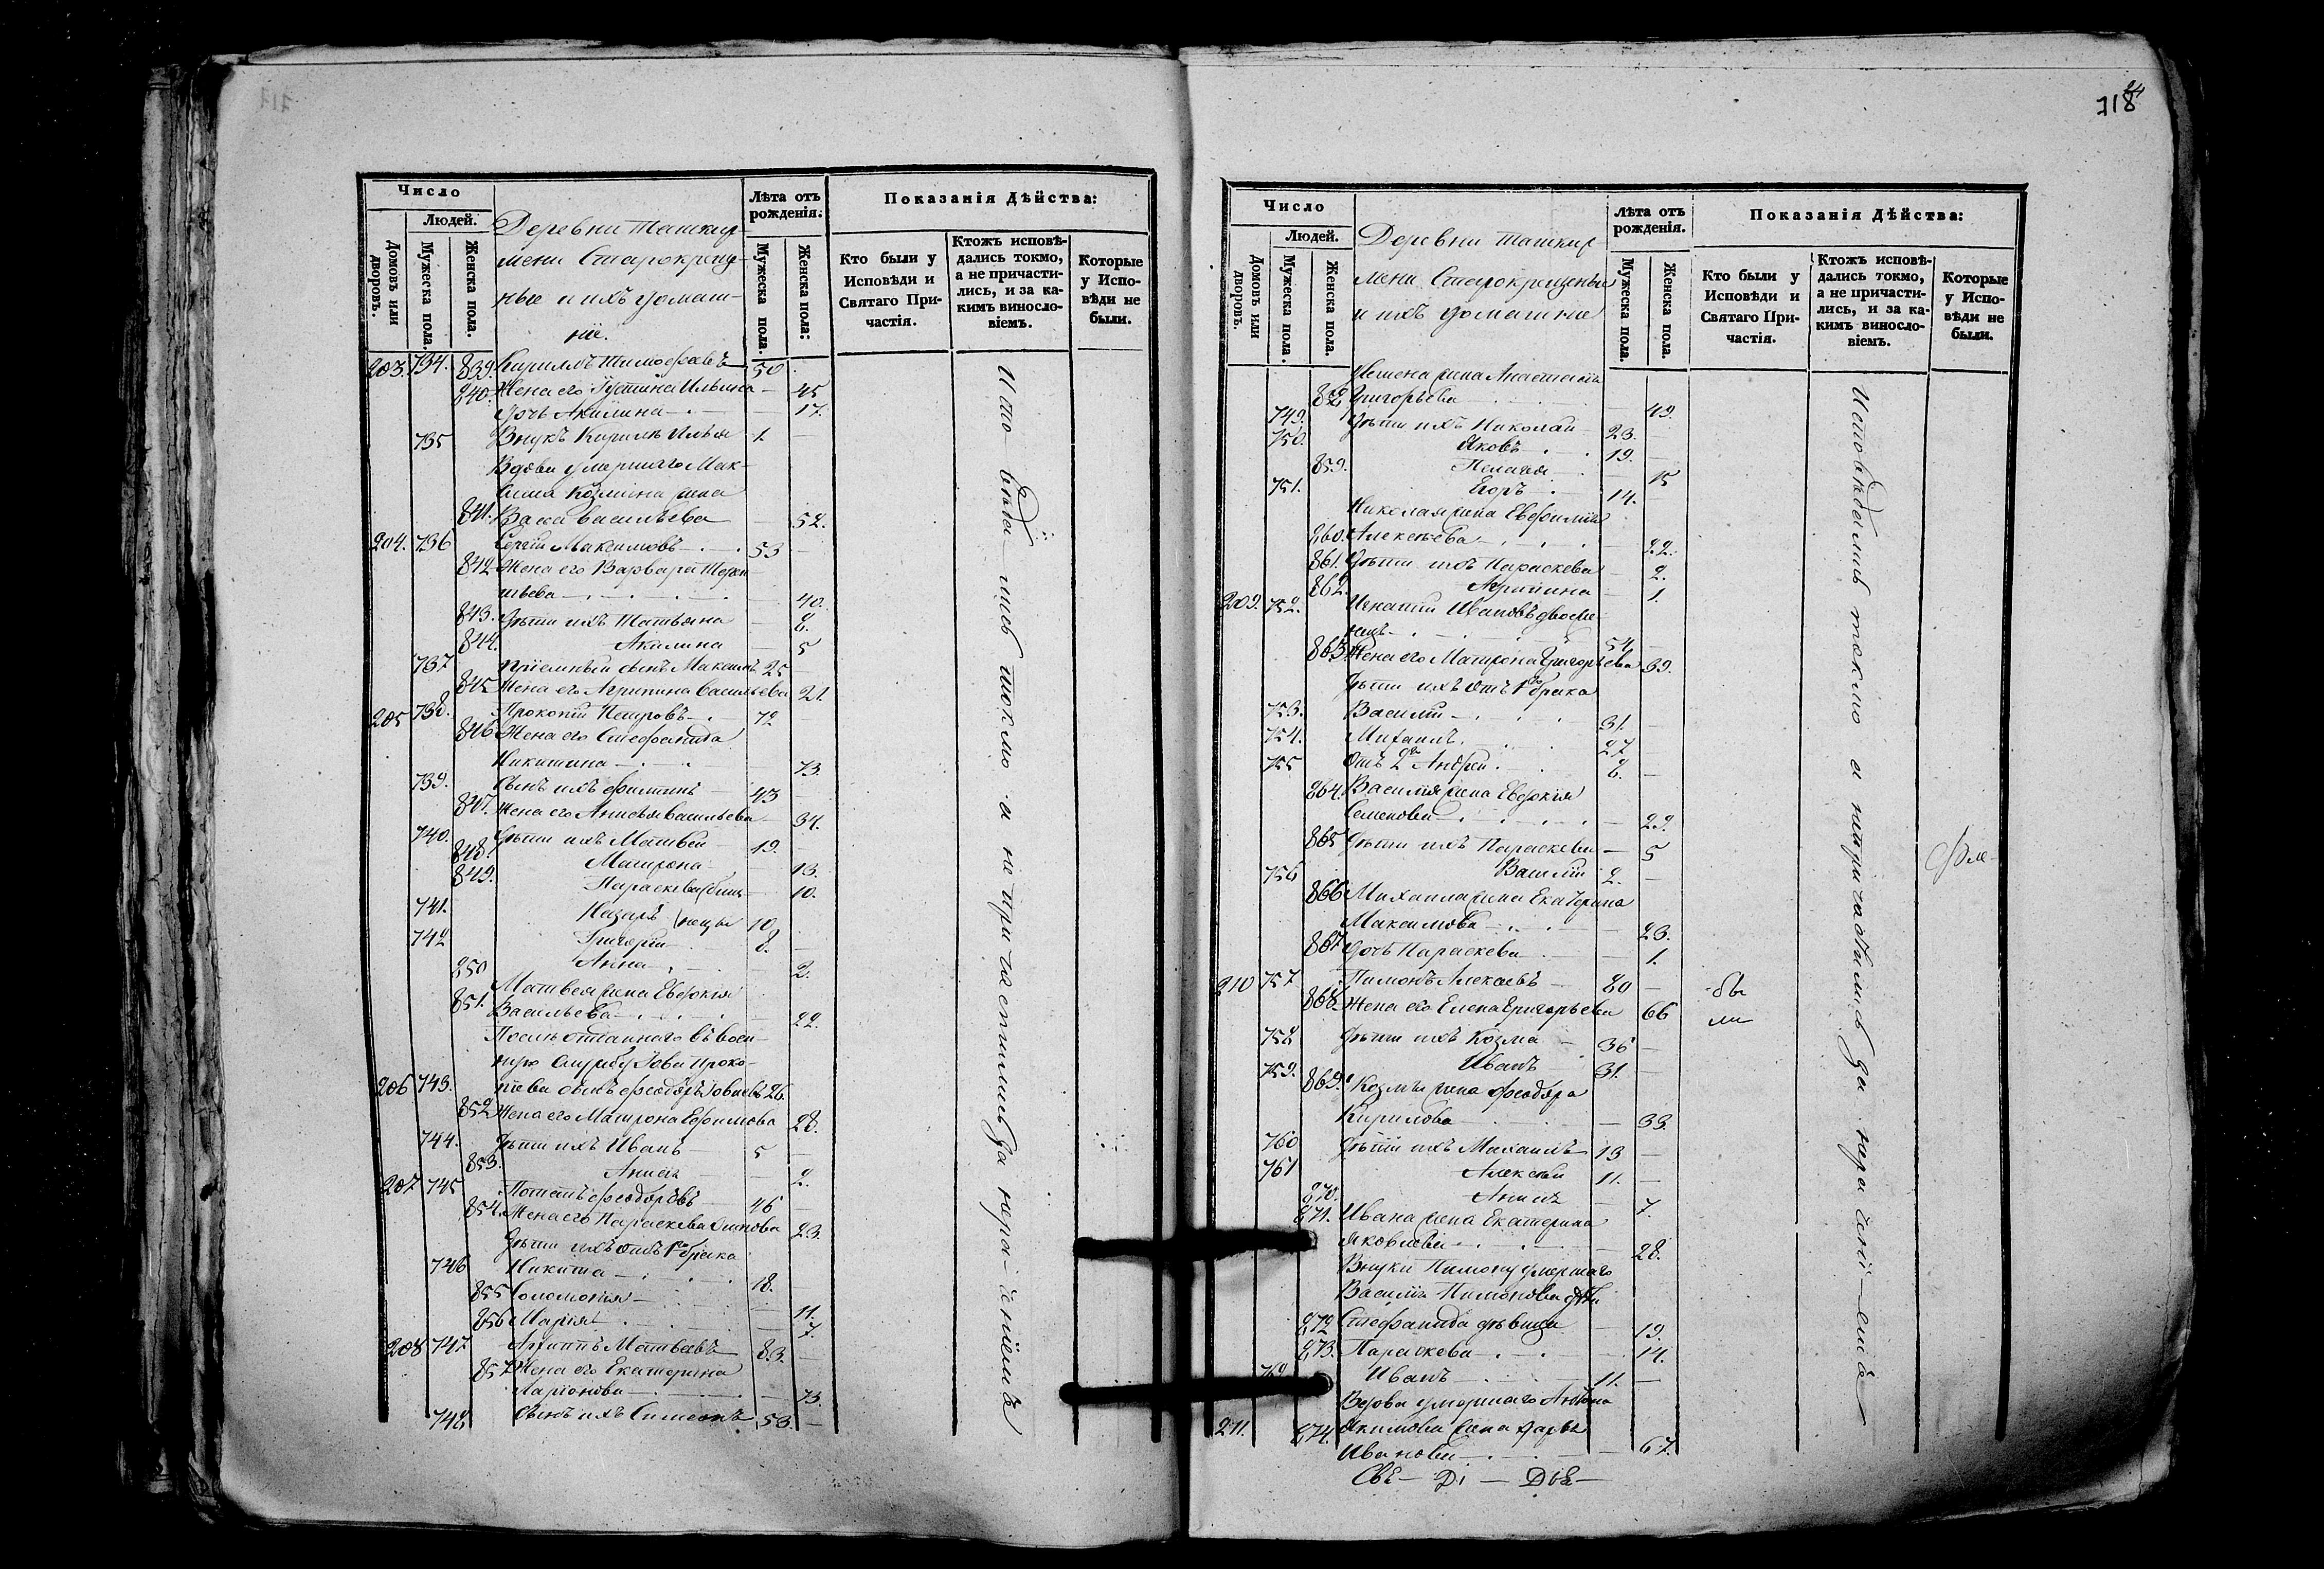 Число
Людей.
Домовъ или дворовъ.
Мужеска пола.
Женска пола.
Деревни Ташкир-
мени Старокреще-
ные и ихъ домаш-
ніе.
Лѣта отъ рожденія:
Мужеска пола.
Женска пола:
Показанія Дѣйства:
Кто были у Исповѣди и Святаго Причастія.
Ктожъ исповѣдались токмо, а не причастились, и за какимъ винословіемъ.
Которые у Исповѣди не были.
203. 734. Кирилъ Тимофеевъ 50
839. Жена его Іустина Ильина — 45
840. Дочь Акилина — 17.
735 Внукъ Кирилъ Ильи 1. —
Вдова умершаго Мак-
сима Козмина жена
841. Васса Васильева 52.
204. 736 Сергій Максимовъ 53 —
842 Жена его Варвара Терен
тьева 40.
843. Дѣти ихъ Татьяна 8.
844. Акилина — 5
737 Пріемный сынъ Максимъ 25
845 Жена его Агрипина Васильева 21.
205 738. Прокопій Петровъ 72
846 Жена его Стефанида
Никитина 73.
739. Сынъ ихъ Филипъ 43
847. Жена его Анисья Васильева 34.
740. Дѣти ихъ Матвей 19. —
848. Матрона 13.
849. Параскева близ- 10.
741. Назаръ нецы 10
742 Григорій 8. —
850 Анна 2.
Матвея жена Евдокія
851. Васильева 22.
Послѣ отданнаго въ воен-
ную службу Іова Проко-
206 743. пьева сынъ Феодоръ Іовлевъ 26
852 Жена его Матрона Ефимова 28.
744. Дѣти ихъ Иванъ 5 —
853. Анна 2.
207 745 Потапъ Феодоровъ 46 —
854. Жена его Параскева Осипова 23.
Дѣти ихъ отъ 1го брака
746 Никита 18.
855 Соломонія 11.
856 Марія 7.
208 747 Архипъ Матвеевъ 83. —
857 Жена его Екатерина
Ларіонова 73.
748 Сынъ ихъ Симеонъ 53. —
Исповѣдались токмо а не причастились за нерачениемъ
718
Число
Людей.
Домовъ или дворовъ.
Мужеска пола.
Женска пола.
Деревни Ташкир
мени Старокрещеные
и ихъ домашніе
Лѣта отъ рожденія.
Мужеска пола.
Женска пола.
Показанія Дѣйства:
Кто были у Исповѣди и Святаго Причастія.
Ктожъ исповѣдались токмо, а не причастились, и за какимъ винословіемъ.
Которые у Исповѣди не были.
жена Анастасія
858 Григорьева 49.
749. Дѣти ихъ Николай 23. —
750. Яковъ 19. —
859. Пелагея 15
751. Егоръ 14.
Николая жена Евфимія
860. Алексеева 22.
861. Дѣти ихъ Параскева 2.
862. Агрипина 1.
209. 752. Игнатій Ивановъ двоеже
нецъ 54
863 Жена его Матрона Григорьева 39.
Дѣти ихъ отъ 1го брака
753. Василій 31. —
754. Михаилъ 27 —
755 Отъ 2го Андрей 8. —
864. Василія жена Евдокія
Семенова 29.
865 Дѣти ихъ Параскева 5
756 Василій 2. —
866 Михаила жена Екатерина
Максимова 23.
867 Дочь Параскева 1.
210 757 Пимонъ Алексеевъ 80 —
868. Жена его Елена Григорьева 66
758 Дѣти ихъ Козма 36 —
759. Иванъ 31. —
869. Козмы жена Феодора
Кирилова 33.
760 Дѣти ихъ Михаилъ 13 —
761 Алексей 11. —
870. Анна 7.
871. Ивана жена Екатерина
Яковлева 28.
Внуки Пимону умершаго
Василія Пимонова дѣти
872 Стефанида дѣвица 19.
873. Параскева 14.
762 Иванъ 11. —
Вдова умершаго Антона
211. 874. Якимова жена Дарья
Иванова 67.
бы
ли
Исповѣдались токмо а не причастились за нерачениемъ